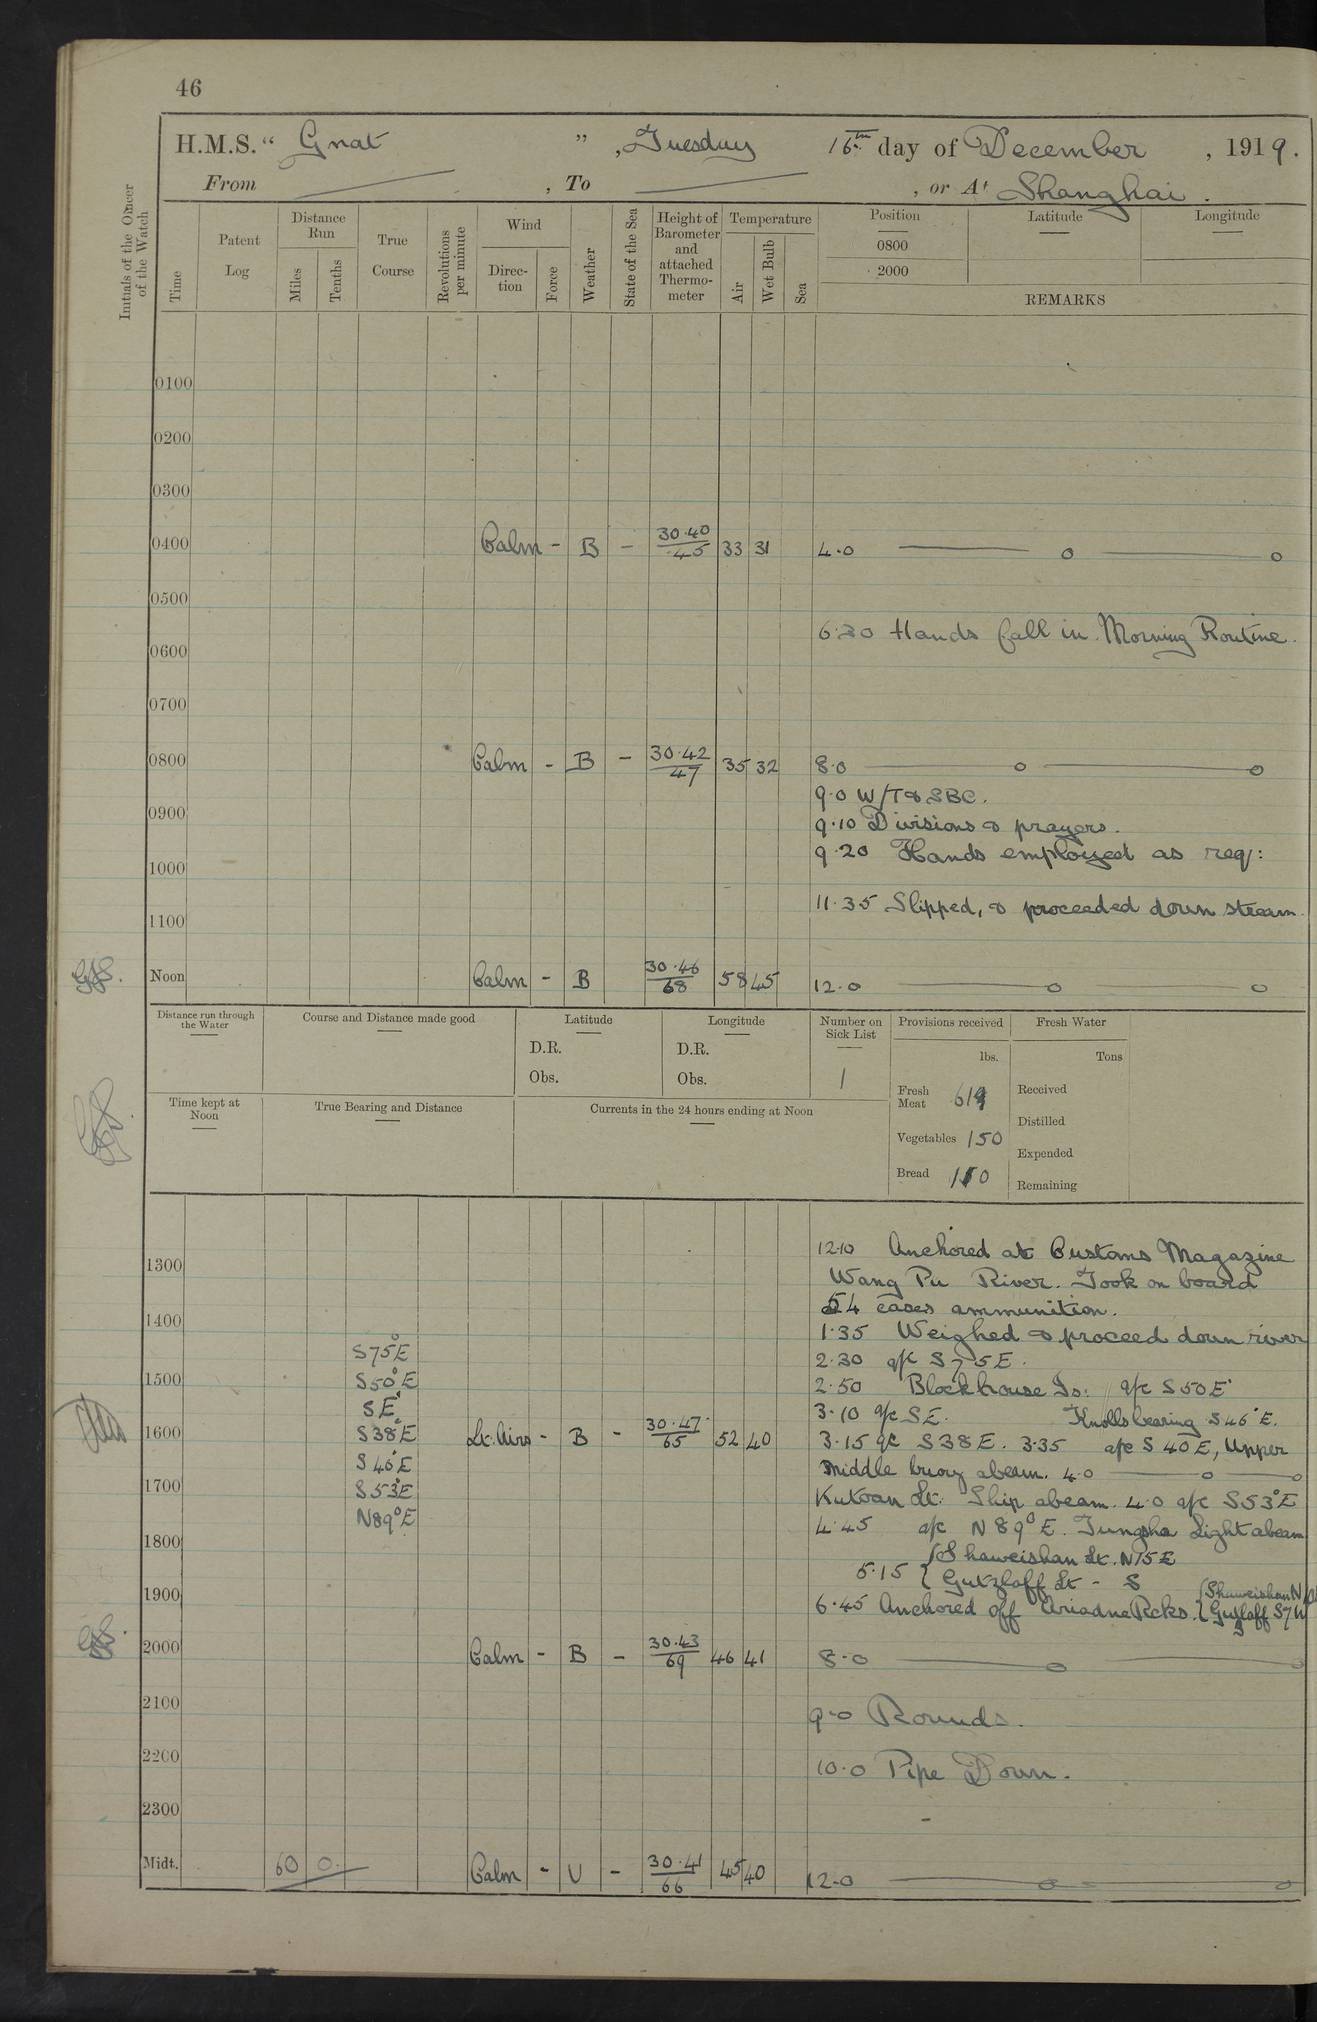 46
H.M.S. " Gnat ", Tuesday 16th day of December, 1919.
From , To , or At Shanghai.
Initials of the Officer of the Watch
Time
Patent Log
Distance Run
Miles
Tenths
True Course
Revolutions per minute
Wind
Direction
Force
Weather
State of the Sea
Height of Barometer and attached Thermometer
Temperature
Air
Wet Bulb
Sea
Position
0800
2000
Latitude
Longitude
REMARKS
0100
0200
0300
0400 Calm - B - 30.40 45 33 31 4.0
0500
6.30 Hands fall in. Morning Routine.
0600
0700
0800 Calm - B - 30.42 47 35 32 8.0
9.0 W/T & SBC.
0900
9.10 Divisions & prayers.
9.20 Hands employed as req:
1000
11.35 Slipped, & proceeded down stream.
1100
Noon Calm - B 30.46 68 58 45 12.0
Distance run through the Water
Course and Distance made good
Latitude
D.R.
Obs.
Longitude
D.R.
Obs.
Number on Sick List
1
Provisions received
lbs.
Fresh Meat
Vegetables 150
Bread
Fresh Water
Tons
Received
Distilled
Expended
Remaining
Time kept at Noon
True Bearing and Distance
Currents in the 24 hours ending at Noon
12.10 Anchored at Customs Magazine
1300
Wang Pu River. Took on board
54 cases ammunition.
1400
1.35 Weighed & proceed down river
S75°E 2.30 a/c S75E.
1500 S50°E 2.50 Blockhouse Is: a/c S50E°
SE° 3.10 a/c SE. Knolls bearing S46°E.
1600 S38°E Lt. Airs - B - 30.47 65 52 40 3.15 a/c S38E. 3.35 a/c S40E, Upper
S46°E Middle buoy abeam. 4.0
1700 S53°E Kutoan Lt. Ship abeam. 4.0 a/c S53°E
N89°E 4.45 a/c N89°E. Tungsha Light abeam
1800
5.15 { Shaweishan Lt. N15E
{ Gutzlaff Lt - S
1900
6.45 Anchored off Ariadne Rcks. { Shaweishan N
{ Gutzlaff S7W
2000 Calm - B - 30.43 69 46 41 8.0
2100
9.0 Rounds.
2200
10.0 Pipe Down.
2300
Midt. 60 0. Calm - U - 30.41 66 45 40 12.0